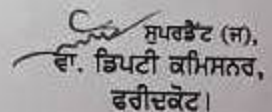 ਸੁਪਰਡੈਂਟ (ਜ),
ਵਾ. ਡਿਪਟੀ ਕਮਿਸਨਰ,
ਫਰੀਦਕੋਟ।